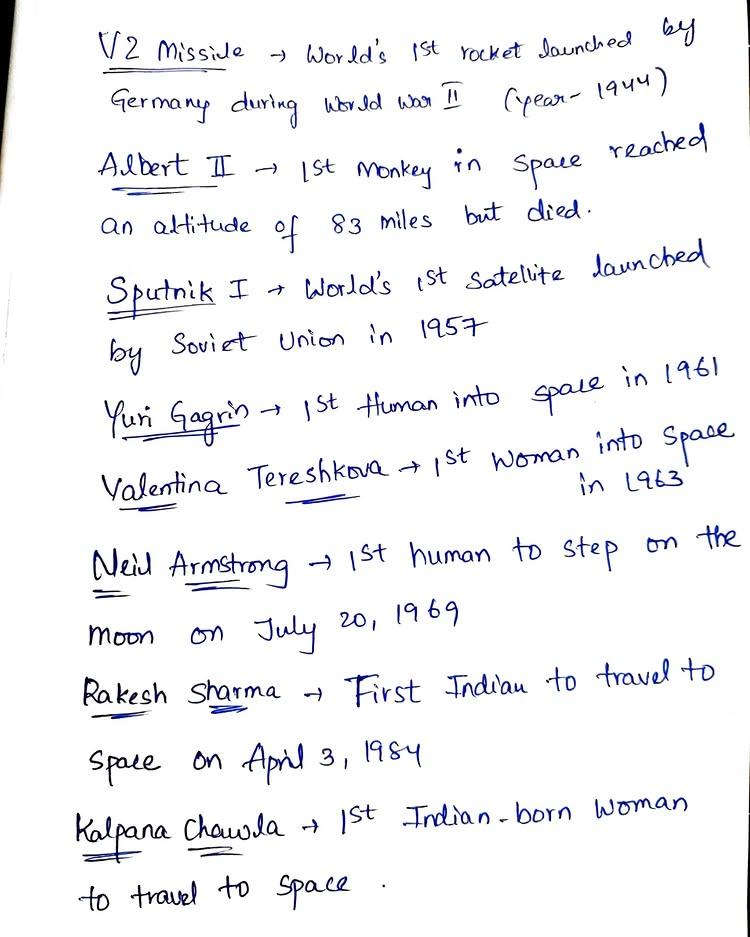 V2 Missile → World's 1st rocket launched by
Germany during World War II (year- 1944)
Albert II → 1st Monkey in space reached
an altitude of 83 miles but died.
Sputnik I → World's 1st satellite launched
by Soviet Union in 1957
Yuri Gagrin → 1st Human into space in 1961
Valentina Tereshkova → 1st Woman into Space
in 1963
Neil Armstrong → 1st human to step on the
Moon on July 20, 1969
Rakesh Sharma → First Indian to travel to
space on April 3, 1984
Kalpana Chawla → 1st Indian-born Woman
to travel to space.